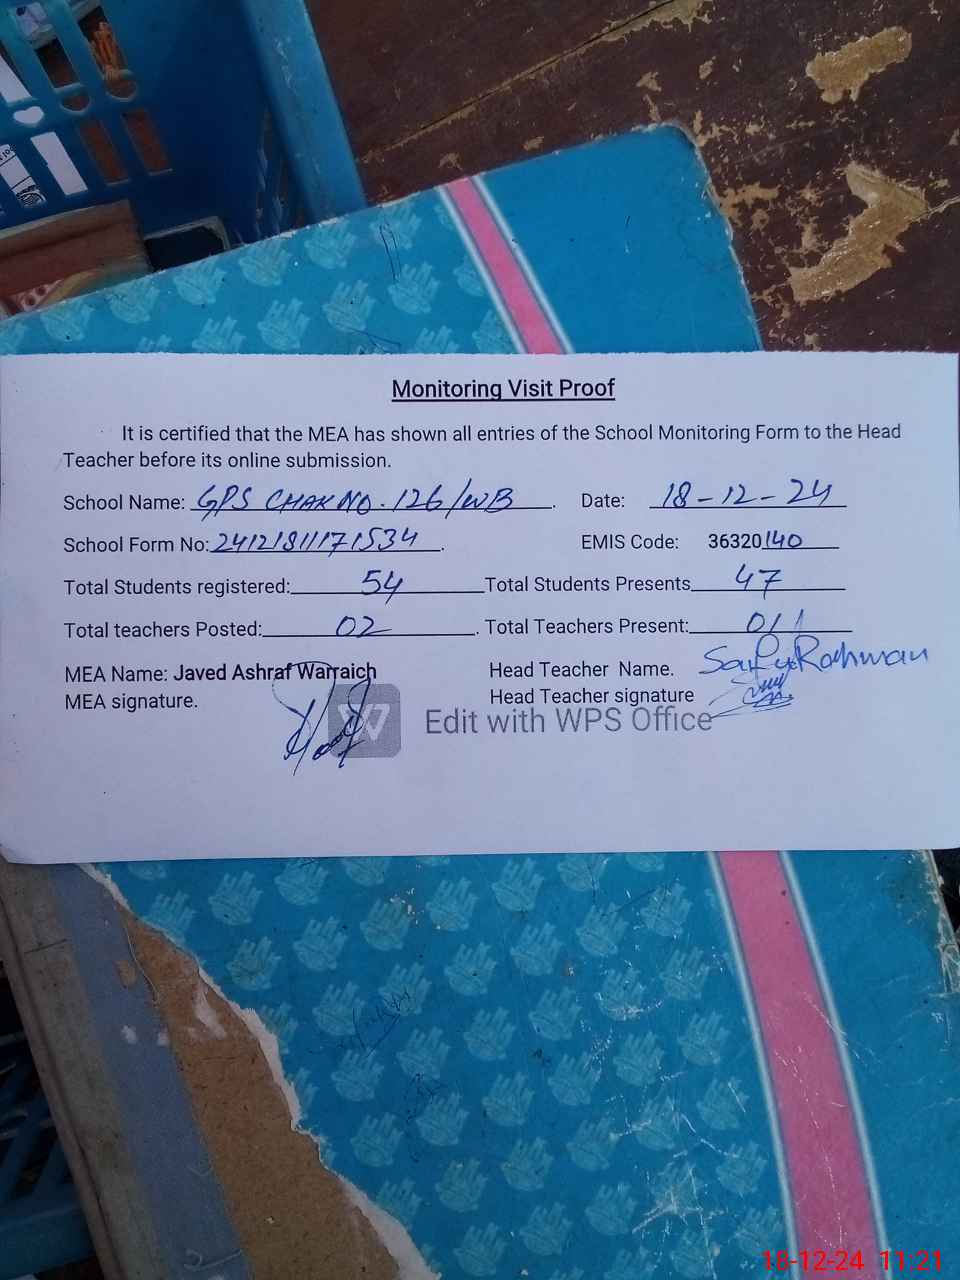 Monitoring Visit Proof
It is certified that the MEA has shown all entries of the School Monitoring Form to the Head
Teacher before its online submission.
School Name: GPS CHAK NO. 126/WB. Date: 18-12-24
School Form No: 24121811171534. EMIS Code: 36320140
Total Students registered: 54 Total Students Presents 47
Total teachers Posted: 02. Total Teachers Present: 01
MEA Name: Javed Ashraf Warraich Head Teacher Name. Saif u Rahman
MEA signature. Head Teacher signature
Edit with WPS Office
18-12-24 11:21